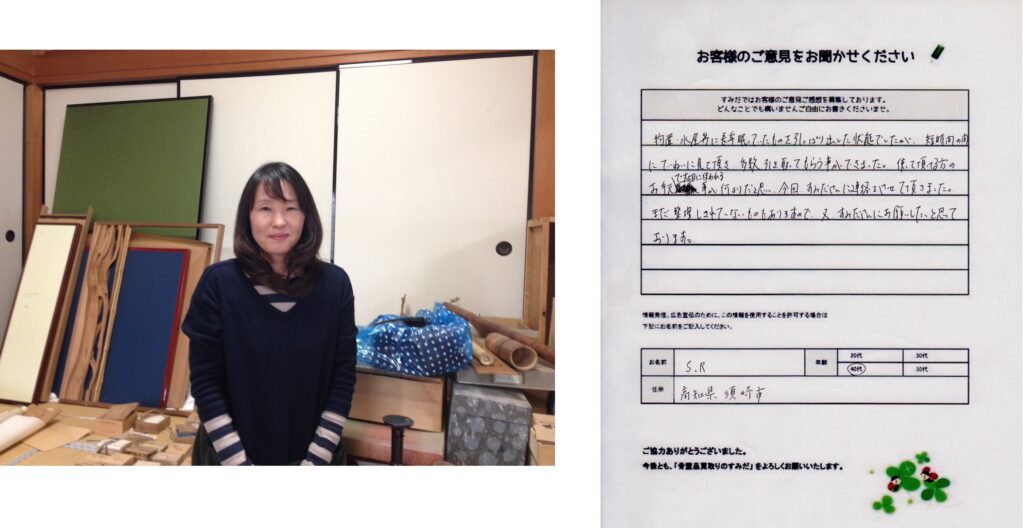 お客様のご意見をお聞かせください
すみだではお客様のご意見ご感想を募集しております。
どんなことでも構いませんご自由にお書きくださいませ。
物置・水屋等に長年眠っていたものを引っぱり出した状態でしたが、短時間の間
にていねいに見て頂き、多数引き取ってもらう事ができました。使って頂ける方の
お手元で大切に使われる事が何よりだと思い、今回、すみださんに連絡させて頂きました。
まだ整理しきれていないものもありますので、又、すみださんにお願いしたいと思って
おります。
情報発信、広告宣伝のために、この情報を使用することを許可する場合は
下記にお名前をご記入してください。
お名前 S.R 年齢 20代 30代
40代 50代
住所 高知県須崎市
ご協力ありがとうございました。
今後とも、「骨董品買取りのすみだ」をよろしくお願いいたします。